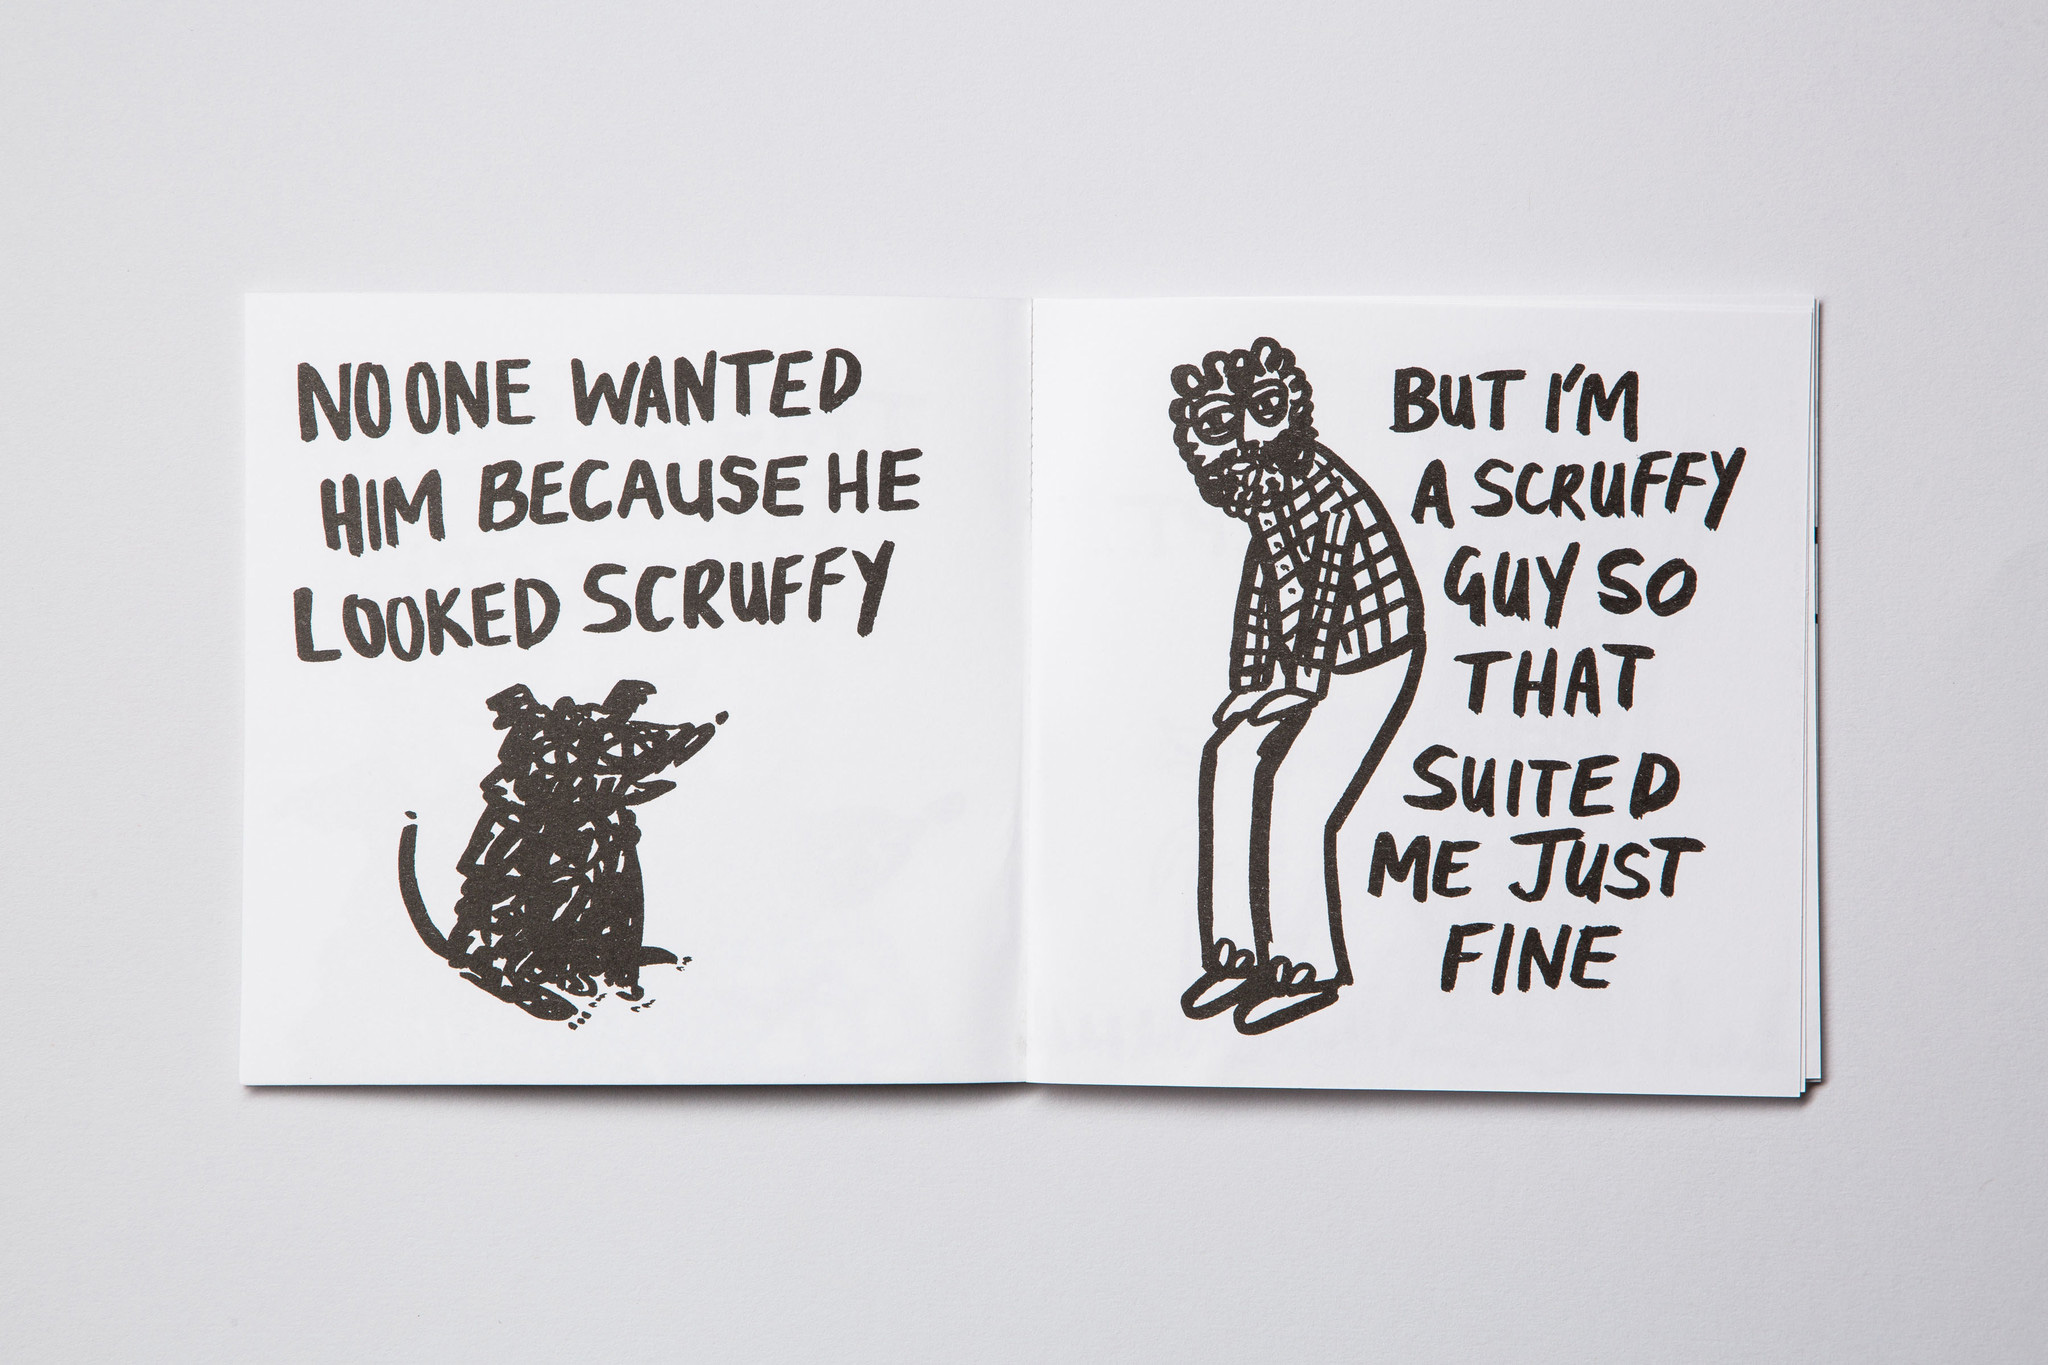 NO ONE WANTED
HIM BECAUSE HE
LOOKED SCRUFFY
BUT I'M
A SCRUFFY
GUY SO
THAT
SUITED
ME JUST
FINE